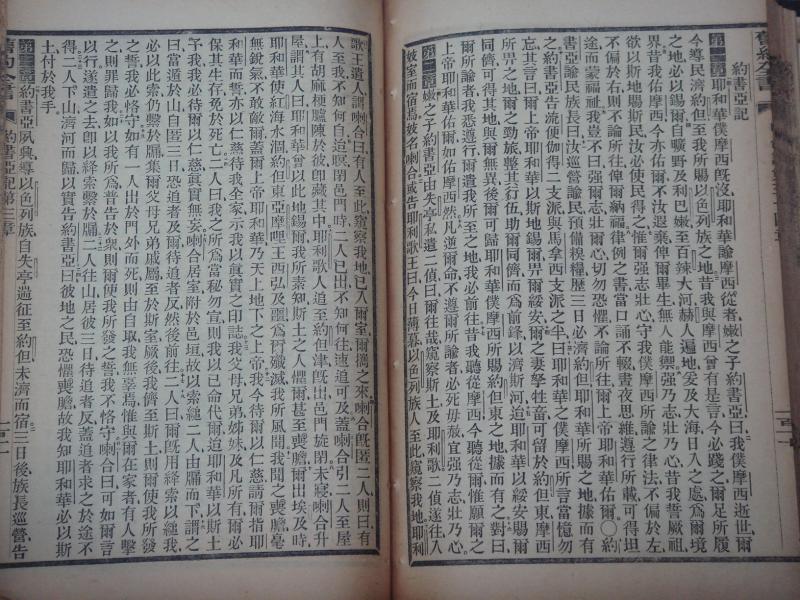 約書亞記
第一章耶和華僕摩西旣沒、耶和華諭摩西從者嫩之子約書亞曰、我僕摩西逝世、爾
今導民濟約但、至我所賜以色列族之地、昔我與摩西曾有是言、今必踐之、爾足所履
之地、必以錫爾、自曠野及利巴嫩、至百辣大河、赫人遍地、爰及大海日入之處、爲爾境
界、昔我佑摩西、今亦佑爾、不汝遐棄、俾爾畢生無人能禦、强乃志、壯乃心、昔我誓厥祖、
欲以斯地錫斯民、汝必使民得之、惟爾强志壯心、守我僕摩西所諭之律法、不偏於左、
不偏於右、則不論所往、俾爾納福、律例之書、當口誦不輟、晝夜思維、遵行所載、可得坦
途、而蒙福祉、我豈不曰、强爾志、壯爾心、切勿恐懼、不論所往、爾上帝耶和華佑爾、〇約
書亞諭民族長曰、汝巡營諭民、預備糗糧、歷三日必濟約但、耶和華所賜之地、據而有
之、約書亞告流便伽得二支派、與馬拿西支派之半曰、耶和華之僕摩西所言、當憶勿
忘、其言曰、爾上帝耶和華以斯地錫爾、畀爾綏安、爾之妻孥牲畜、可留於約但東、摩西
所畀之地、爾之勁旅、整其行伍、助爾同儕、而爲前鋒、以濟斯河、迨耶和華以綏安賜爾
同儕、可得其地、與爾無異、後爾可歸耶和華僕摩西所賜約但東之地、據而有之、對曰、
爾所諭者、我悉遵行、爾遣我所至之地、我必前往、昔我聽從摩西、今聽從爾、惟願爾之
上帝耶和華佑爾、如佑摩西然、凡逆爾命、不遵爾所諭者、必死毋赦、宜强乃志、壯乃心、
第二章嫩之子約書亞由失亭私遣二偵、曰、爾往哉、窺察斯土、及耶利歌、二偵遂往、入
妓室而宿焉、妓名喇合、或告耶利歌王曰、今日薄暮、以色列族人至此、窺察我地、耶利
歌王遣人謂喇合曰、有人至此、窺察我地、已入爾室、爾攜之來、喇合旣匿二人、則曰、有
人至、我不知何自、迨暝閉邑門時、二人已出、不知何往、速追可及、蓋喇合引二人至屋
上、有胡麻梗臚陳於彼、卽藏其中、耶利歌人追至約但津、旣出、邑門旋閉、未寢、喇合升
屋、謂其人曰、耶和華曾以此地錫爾、我所素知、斯土之人、懼爾甚、至喪膽、爾出埃及時、
耶和華使紅海水涸、約但東亞摩哩王西弘及噩、爲爾殲滅、我所風聞、我聞之喪膽、毫
無銳氣、不敢敵爾、蓋爾上帝耶和華、乃天上地下之上帝、我今待爾以仁慈、請爾指耶
和華而誓、亦以仁慈待我全家、示我以眞實之印誌、我父母兄弟姊妹、及凡所有、爾必
保其生存、免於死亡、二人曰、我之所爲、當秘勿宣、則我以己命代爾、迨耶和華以斯土
予我、我必待爾以仁慈眞實無妄、喇合居室附於邑垣、故以索縋二人由牖而下、謂之
曰、當遁於山、自匿三日、恐追者及爾、待追者反、然後前往、二人曰、爾旣用絳索以縋我、
必以此索仍繫於牖、集爾父母兄弟戚屬、至於斯室、厥後我儕至斯土、則爾使我所發
之誓、我必恪守、如有一人出於門外而死、則由自取、我無辜焉、惟與爾在家者、有人擊
之、則罪歸我、如以我所爲、普告於衆、則爾使我所發之誓、我不恪守、喇合曰、可如爾言、
以行、遂遣之去、卽以絳索繫於牖、二人往山、居彼三日、待追者反、蓋追者求之於途、不
得、二人下山、濟河而歸、以實告約書亞曰、彼地之民、恐懼喪膽、故我知耶和華必以斯
土付於我手、
第三章約書亞夙興、導以色列族自失亭過征、至約但未濟而宿、三日後、族長巡營、告
舊約全書
約書亞記第三章